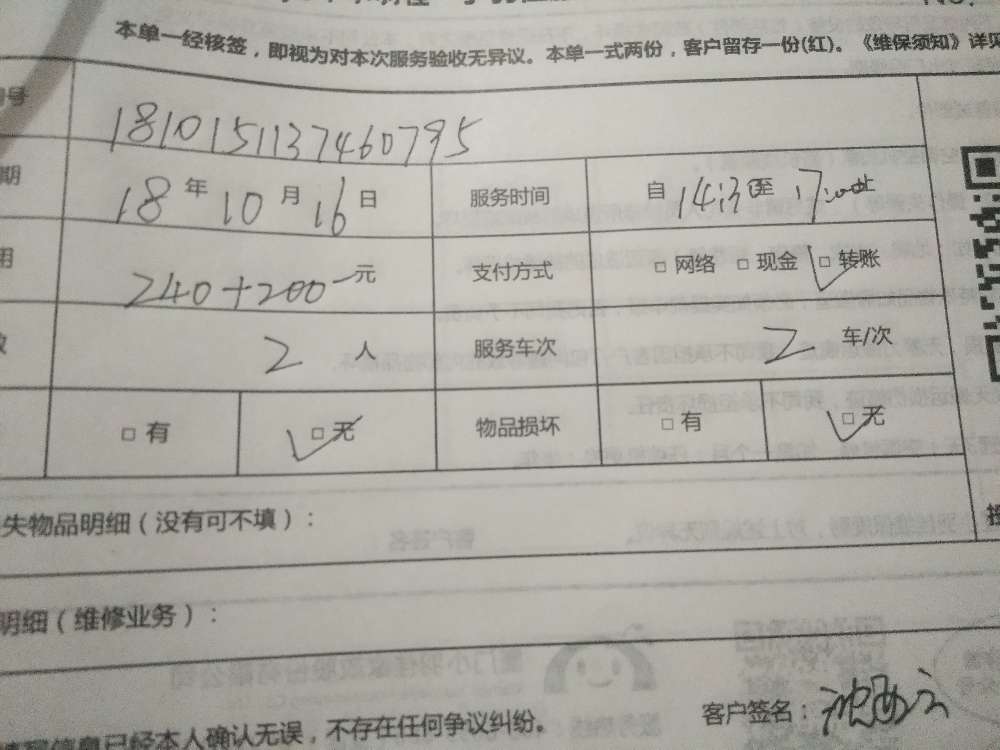 NO.
本单一经核签，即视为对本次服务验收无异议。本单一式两份，客户留存一份(红)。《维保须知》详见
号 18101511374607795
期 18 年 10 月 16 日 服务时间 自 14:3 至 17:00止
用 240+200 元 支付方式 □ 网络 □ 现金 □ 转账
2 人 服务车次 2 车/次
□ 有 □ 无 物品损坏 □ 有 □ 无
失物品明细（没有可不填）：
明细（维修业务）：
客户签名：
信息已经本人确认无误，不存在任何争议纠纷。